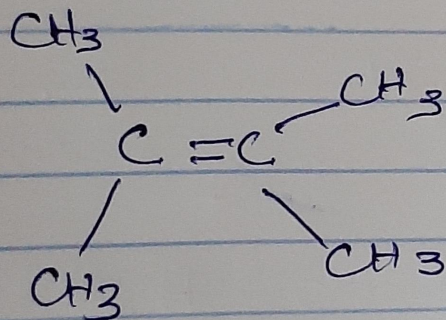 CH3
CH3
C=C
CH3
CH3